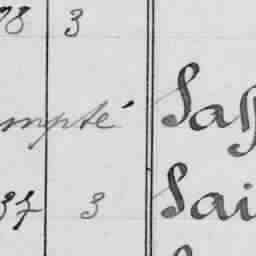 78 3
mpté Saff
37 3 Sai